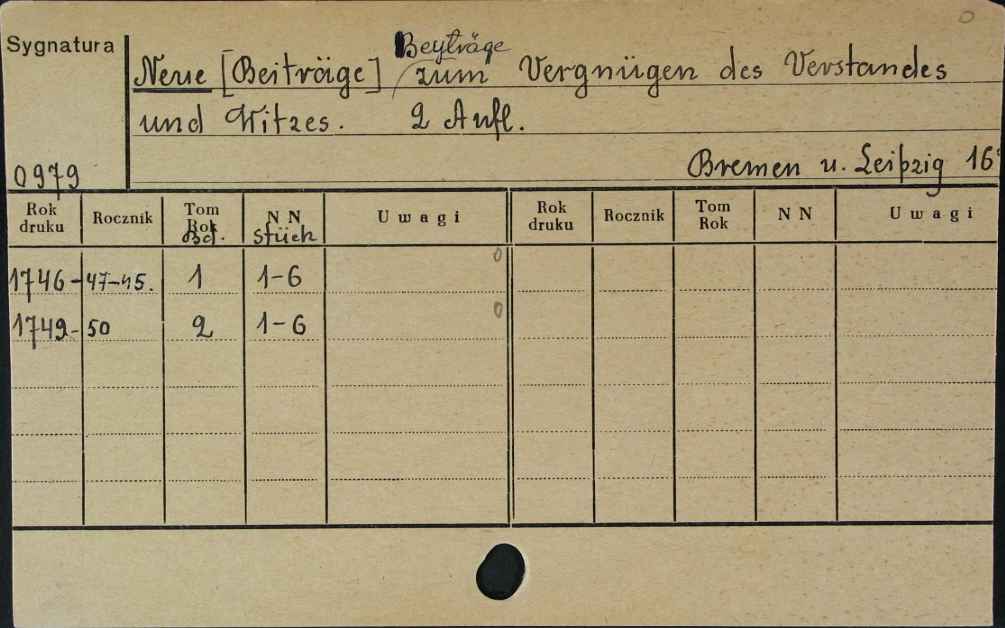 Sygnatura
Beyträge
Neue [Beiträge] zum Vergnügen des Verstandes
und Witzes. 2 Aufl.
0979
Bremen u. Leipzig 16
Rok druku Rocznik Tom Rok Bd. N N Stück Uwagi Rok druku Rocznik Tom Rok N N Uwagi
1746-47-45. 1 1-6 0
1749-50 2 1-6 0